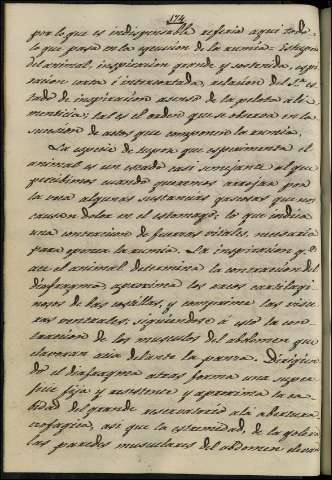 174.
por lo que es indispensable referir aqui todo
lo que pasa en la ejecucion de la rumia:
del animal, inspiracion grande y sostenida, espi-
racion corta é interceptada, relacion del
tado de inspiracion ascenso de la pelota ali-
menticia: tal es el orden que se observa en la
sucesion de actos que componen la rumia.
La especie de que esperimenta el
animal es un estado casi semejante al que
percibimos cuando queremos arrojar por
la boca algunas sustancias gaseosas que nos
causan dolor en el estomago, lo que indica
una contraccion de fuerzas vitales, necesaria
para operar la rumia. La inspiracion q.e
hace el animal determina la contraccion del
diafragma, aproxima los arcos cartilagi-
nosos de las costillas, y comprime las visce-
ras ventrales; siguiendose á esto la con-
traccion de los musculos del abdomen que
elevan acia delante la panza. Dirigien-
do el diafragma atras forma una super-
ficie fija y resistente y aproxima la ca-
bidad del grande reservatorio á la abertura
esofagica, asi que la estremidad de la gotera
las paredes musculares del abdomen elevan